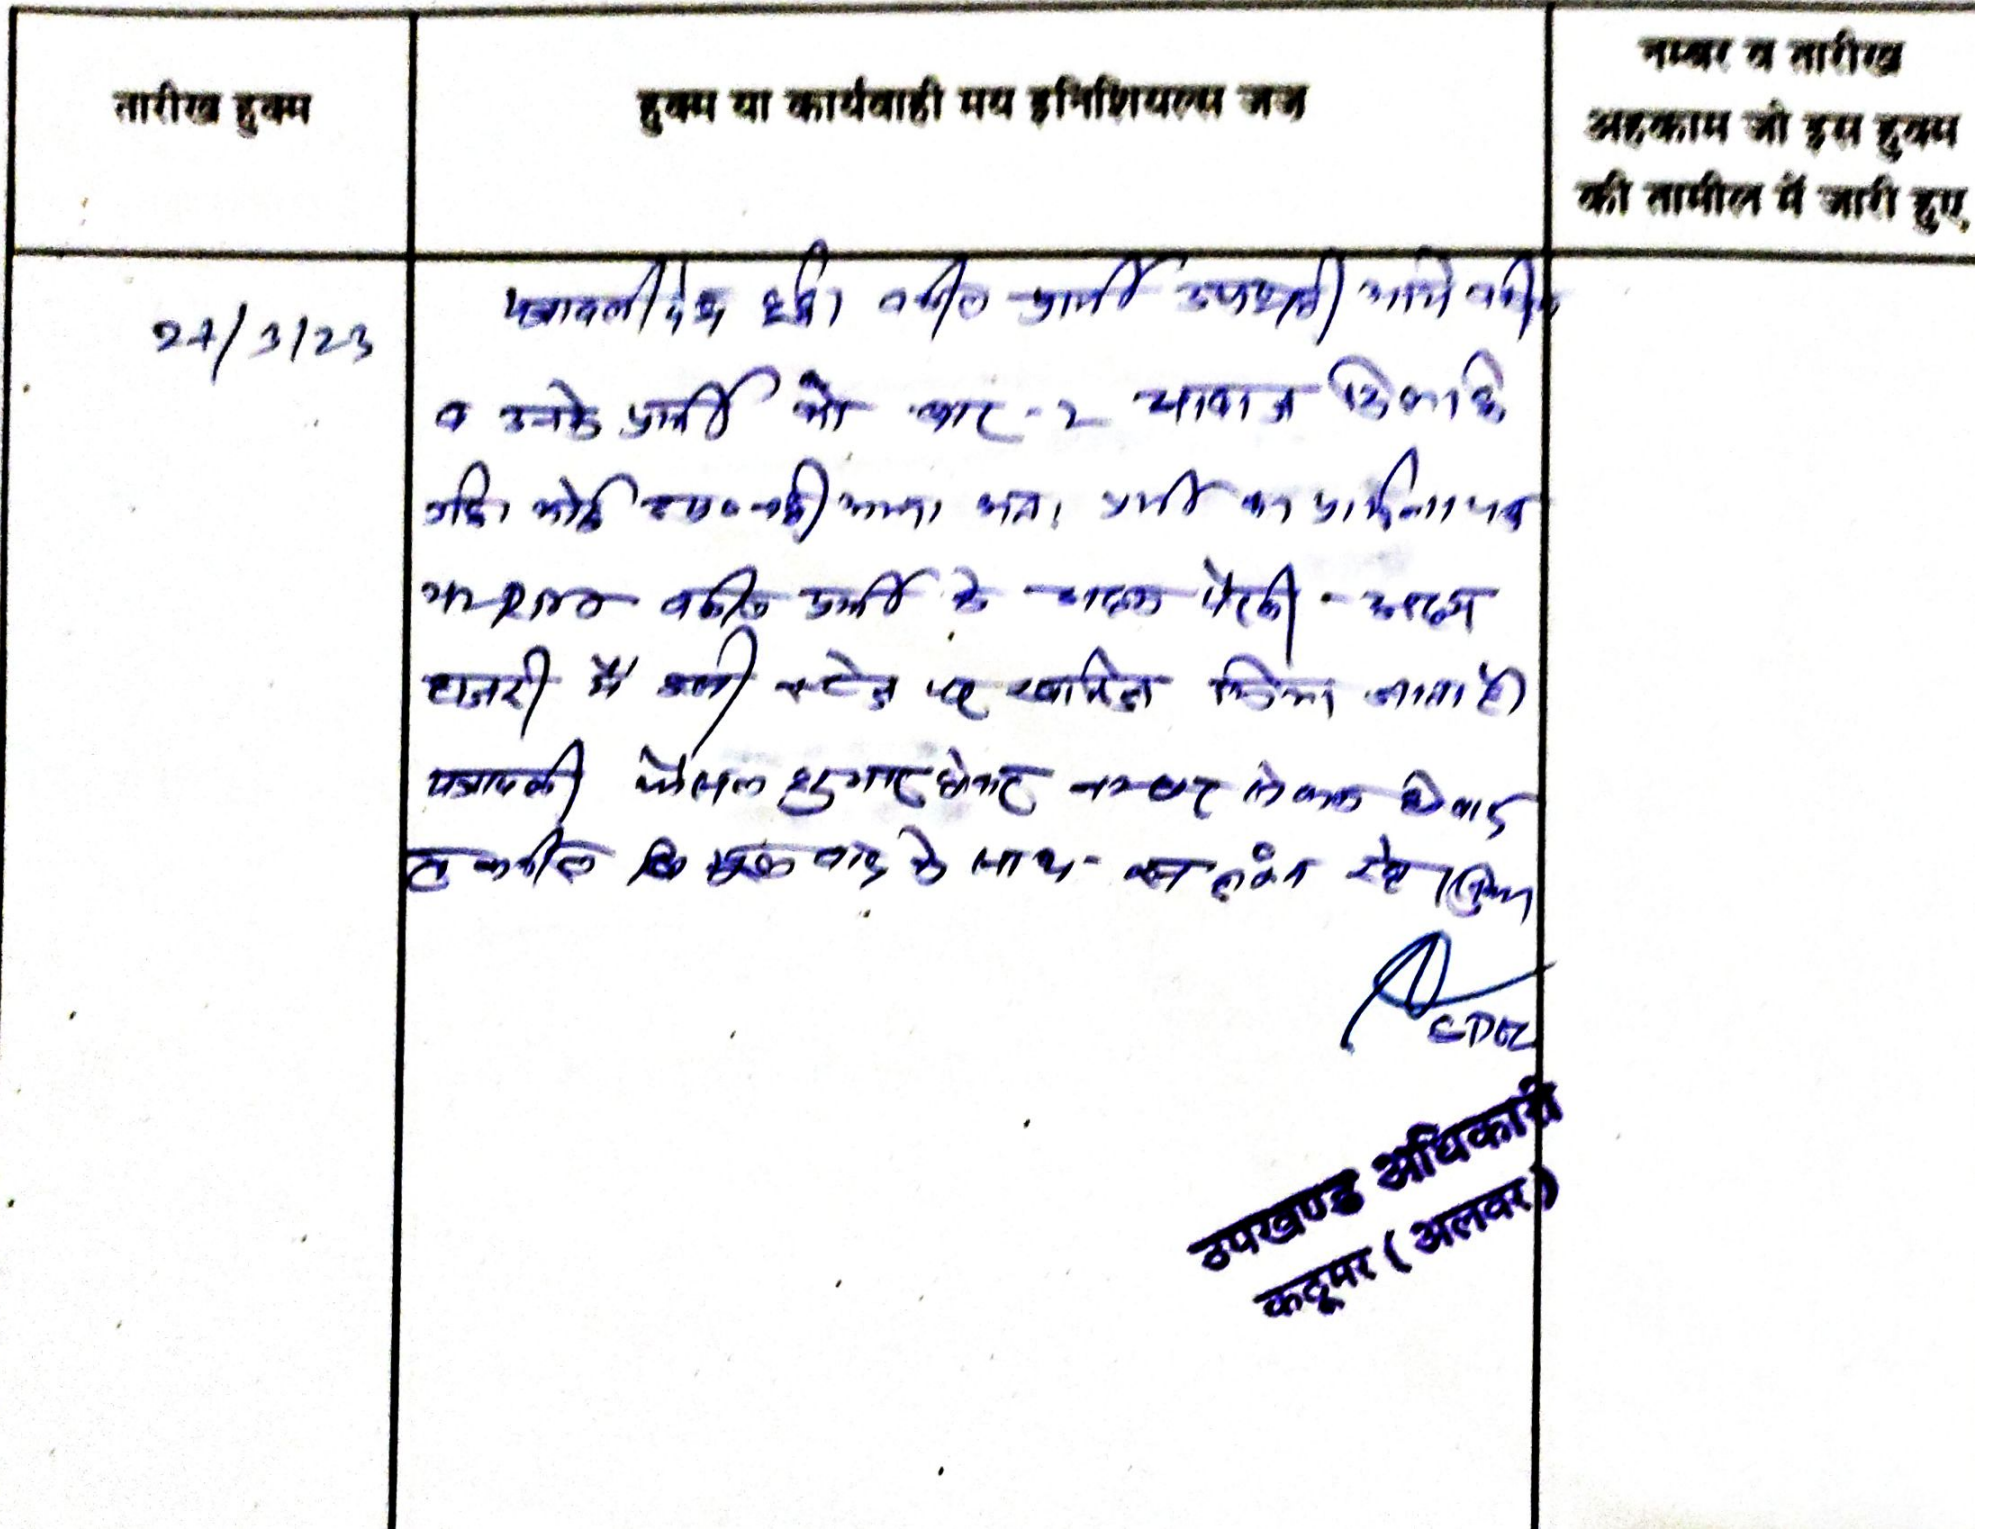 तारीख हुक्म
हुक्म या कार्यवाही मय इनिशियल्स जज
नम्बर व तारीख
अहकाम जो इस हुक्म
की तामील में जारी हुए
27/3/23
पत्रावली पेश हुई। वकील प्रार्थी उपस्थित
व उनके प्रार्थी को बार-2 आवाज
गई। कोई उप० नही आया। अतः प्रार्थी का प्रार्थना पत्र
वकील प्रार्थी के अदम पैरवी - अदम
हाजरी में इसी स्टेज पर खारिज किया जाता है।
पत्रावली फैसल शुमार होकर नम्बर से कम होवे बाद
तकमील मूल वाद के साथ संलग्न रहे।
SDO
उपखण्ड अधिकारी
कठूमर (अलवर)